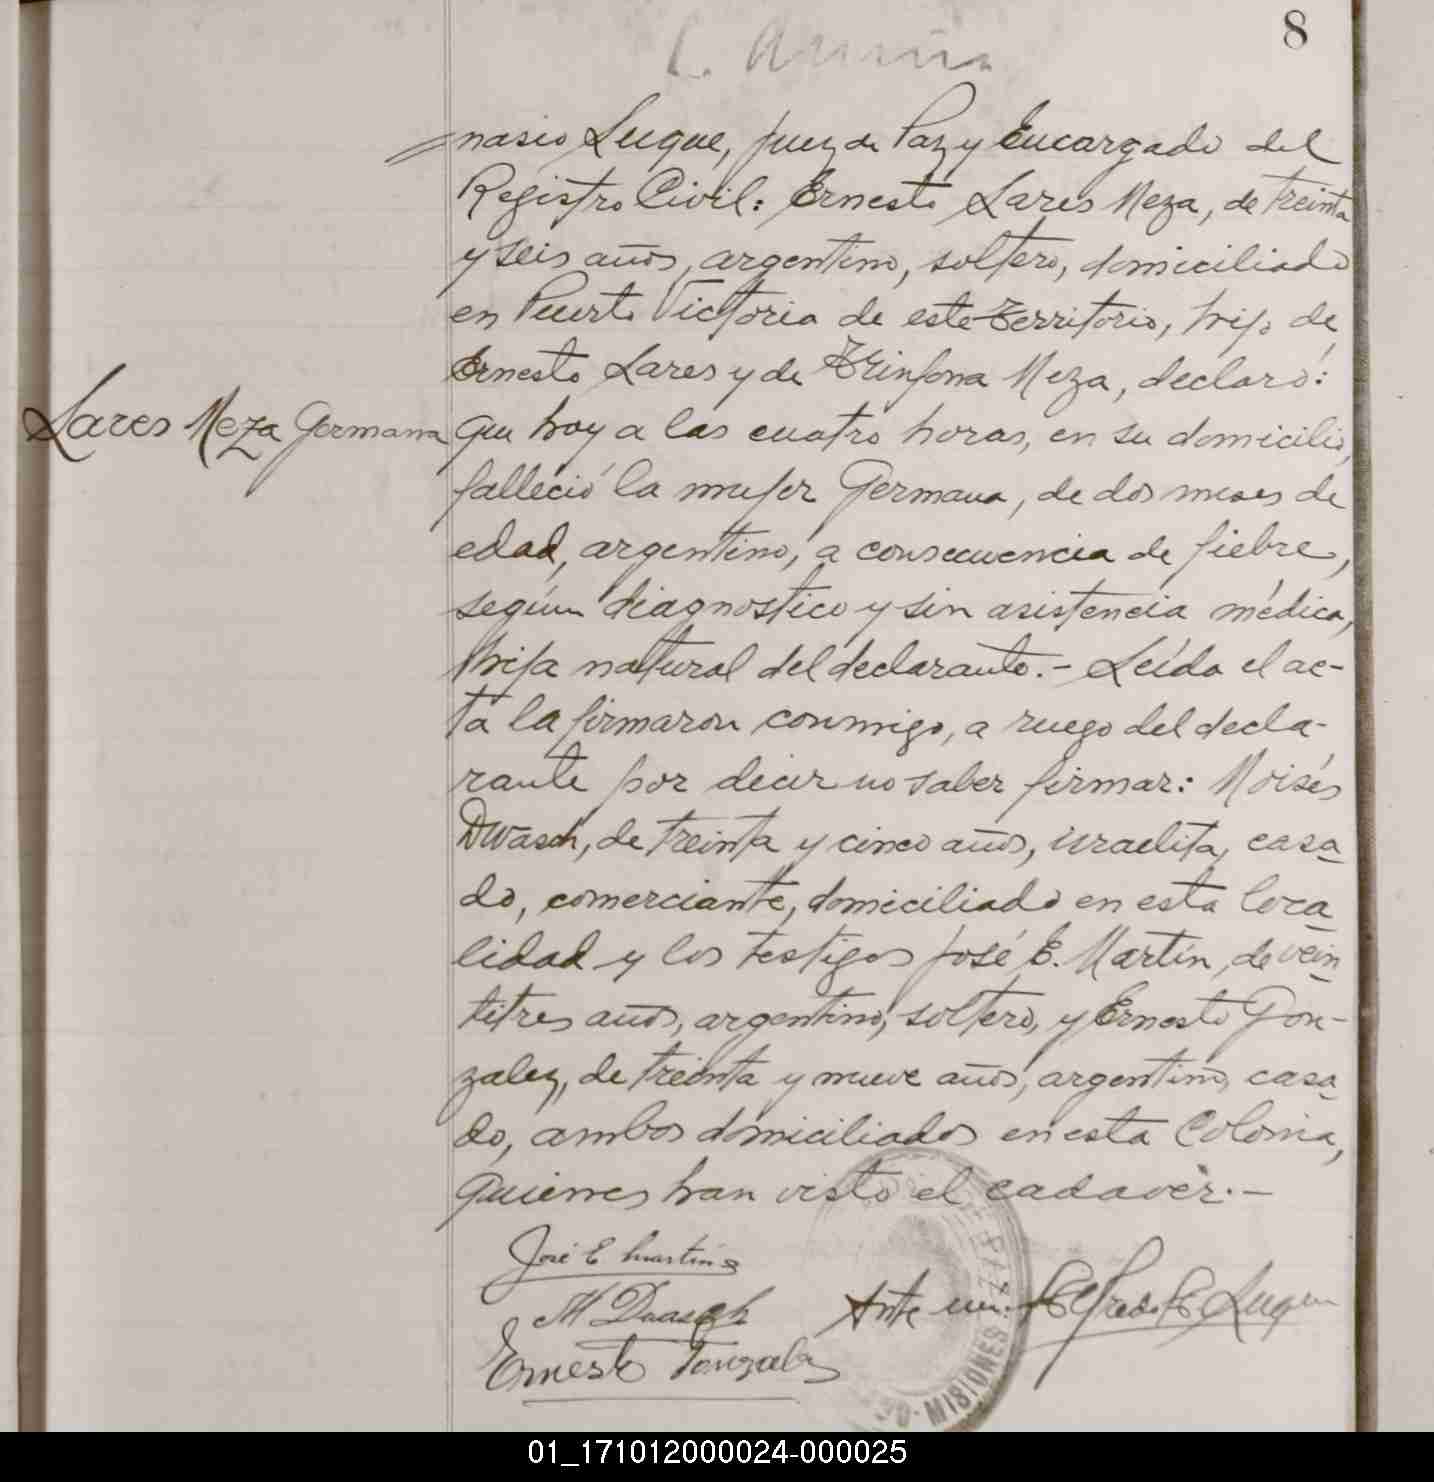 8
nasio Luque, Juez de Paz y Encargado del
Registro Civil: Ernesto Lares Meza, de treinta
y seis años, argentino, soltero, domiciliado
en Puerto Victoria de este Territorio, hijo de
Ernesto Lares y de Trinfona Meza, declaró:
Lares Meza Germana
que hoy a las cuatro horas, en su domicilio,
falleció la mujer Germana, de dos meses de
edad, argentino, a consecuencia de fiebre,
según diagnostico y sin asistencia médica,
hija natural del declarante.- Leída el ac-
ta la firmaron conmigo, a ruego del decla-
rante por decir no saber firmar: Moisés
Dwasch, de treinta y cinco años, israelita, casa
do, comerciante, domiciliado en esta loca
lidad y los testigos José E. Martín, de vein
titres años, argentino, soltero, y Ernesto Gon-
zalez, de treinta y nueve años, argentino, casa
do, ambos domiciliados en esta Colonia,
quienes han visto el cadaver.-
José E Martín
M Dwasch
Ante mi: Alfredo E Luque
Ernesto Gonzalez
MISIONES
01_171012000024-000025